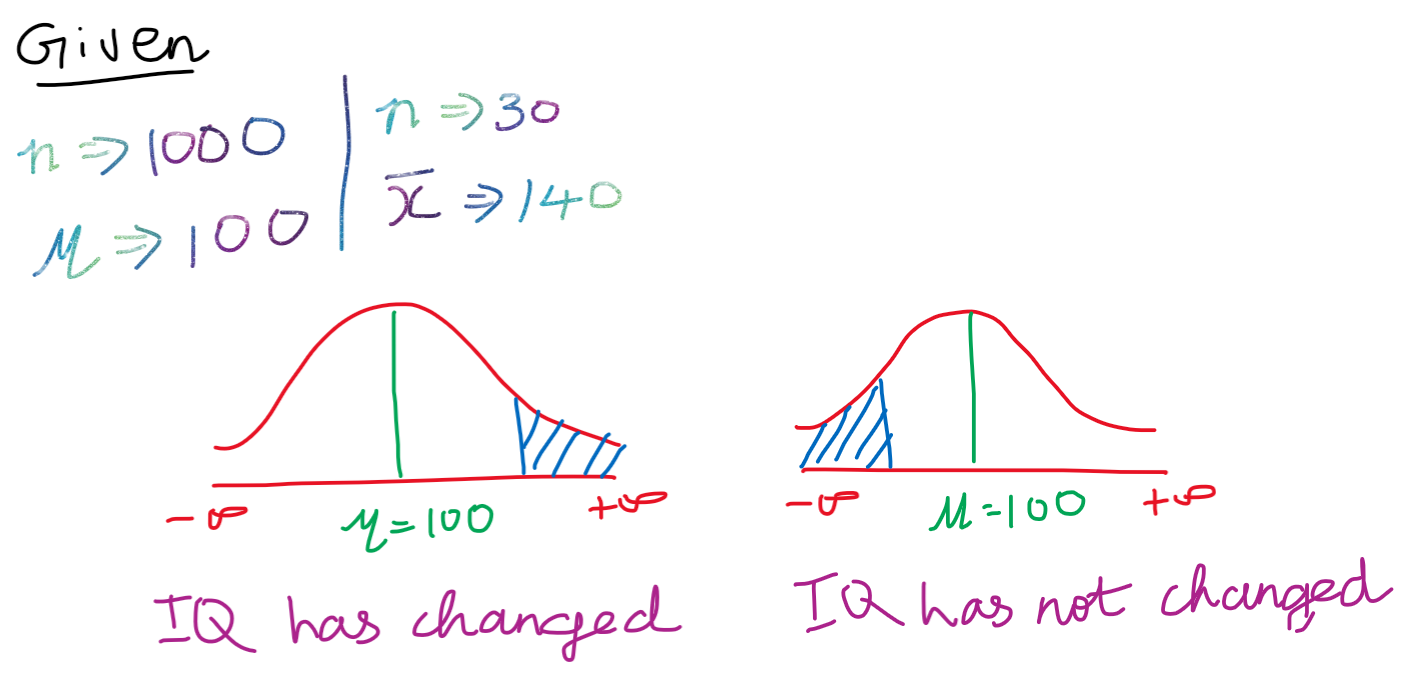 Given
n ⇒ 1000
μ ⇒ 100
n ⇒ 30
x̄ ⇒ 140
-∞ μ=100 +∞
-∞ μ=100 +∞
IQ has changed
IQ has not changed